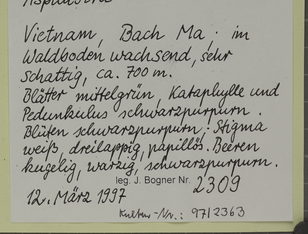 Vietnam, Bach Ma. im
Waldboden wachsend, sehr
schattig, ca. 700 m.
Blätter mittelgrün, Kataphylle und
Pedunkulus schwarzpurpurn.
Blüten schwarzpurpurn: Stigma
weiß, dreilappig, papillös. Beeren
kugelig, warzig, schwarzpurpurn.
leg. J. Bogner Nr. 2309
12. März 1997
Kultur-Nr.: 97/2363